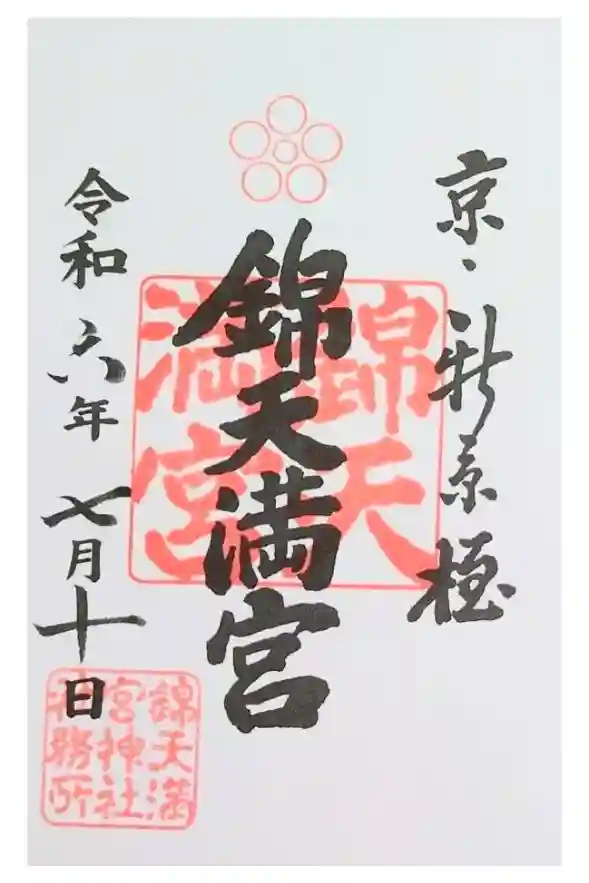 京・新京極
錦天満宮
令和六年七月十日
錦天
満宮
錦天満
宮神社
社務所